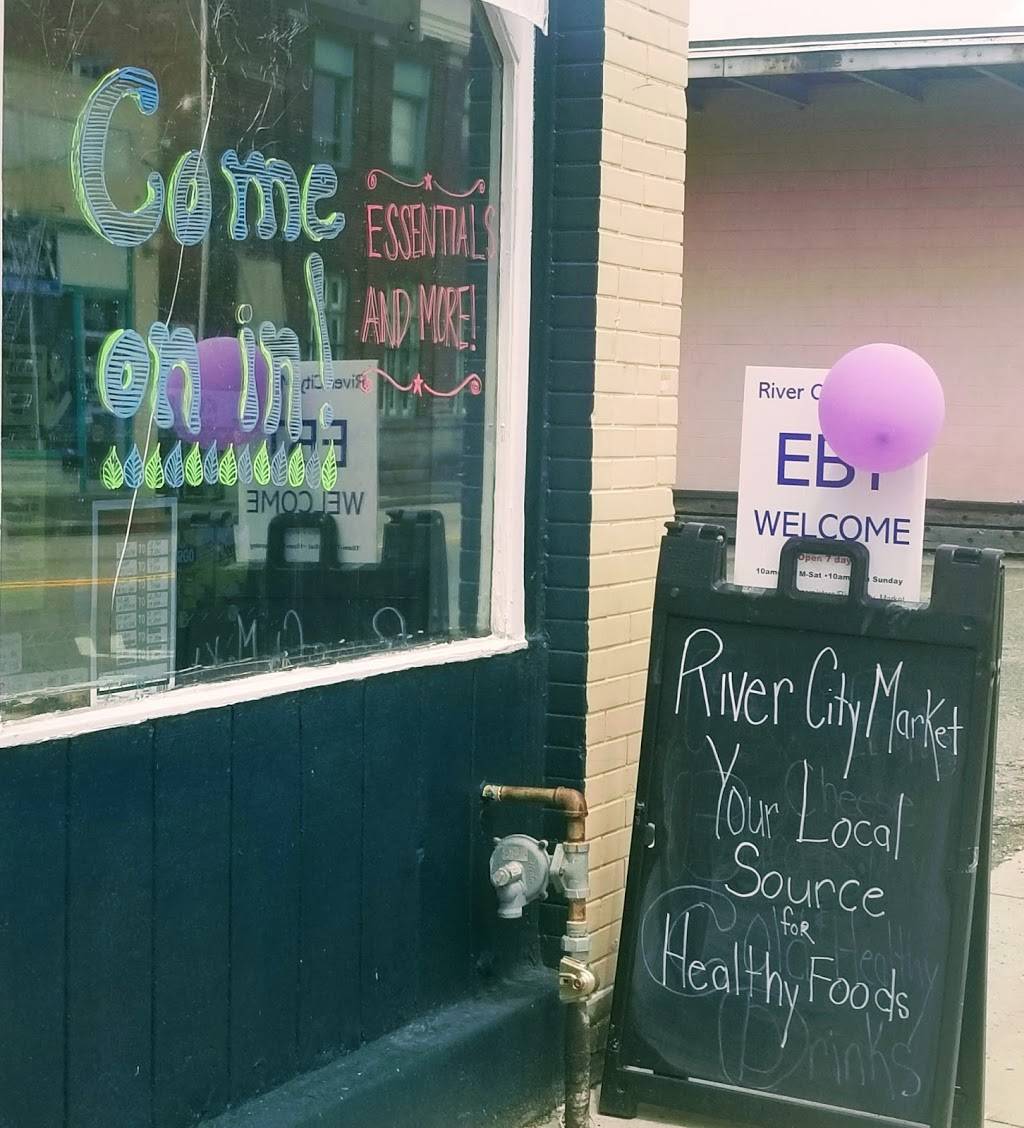 Come
on in!
ESSENTIALS
AND MORE!
River C
EBT
WELCOME
Open 7 day
10am M-Sat • 10am Sunday
Market
River City Market
Your Local
Source
for
Healthy Foods
Cheese
Cold
Healthy
Drinks